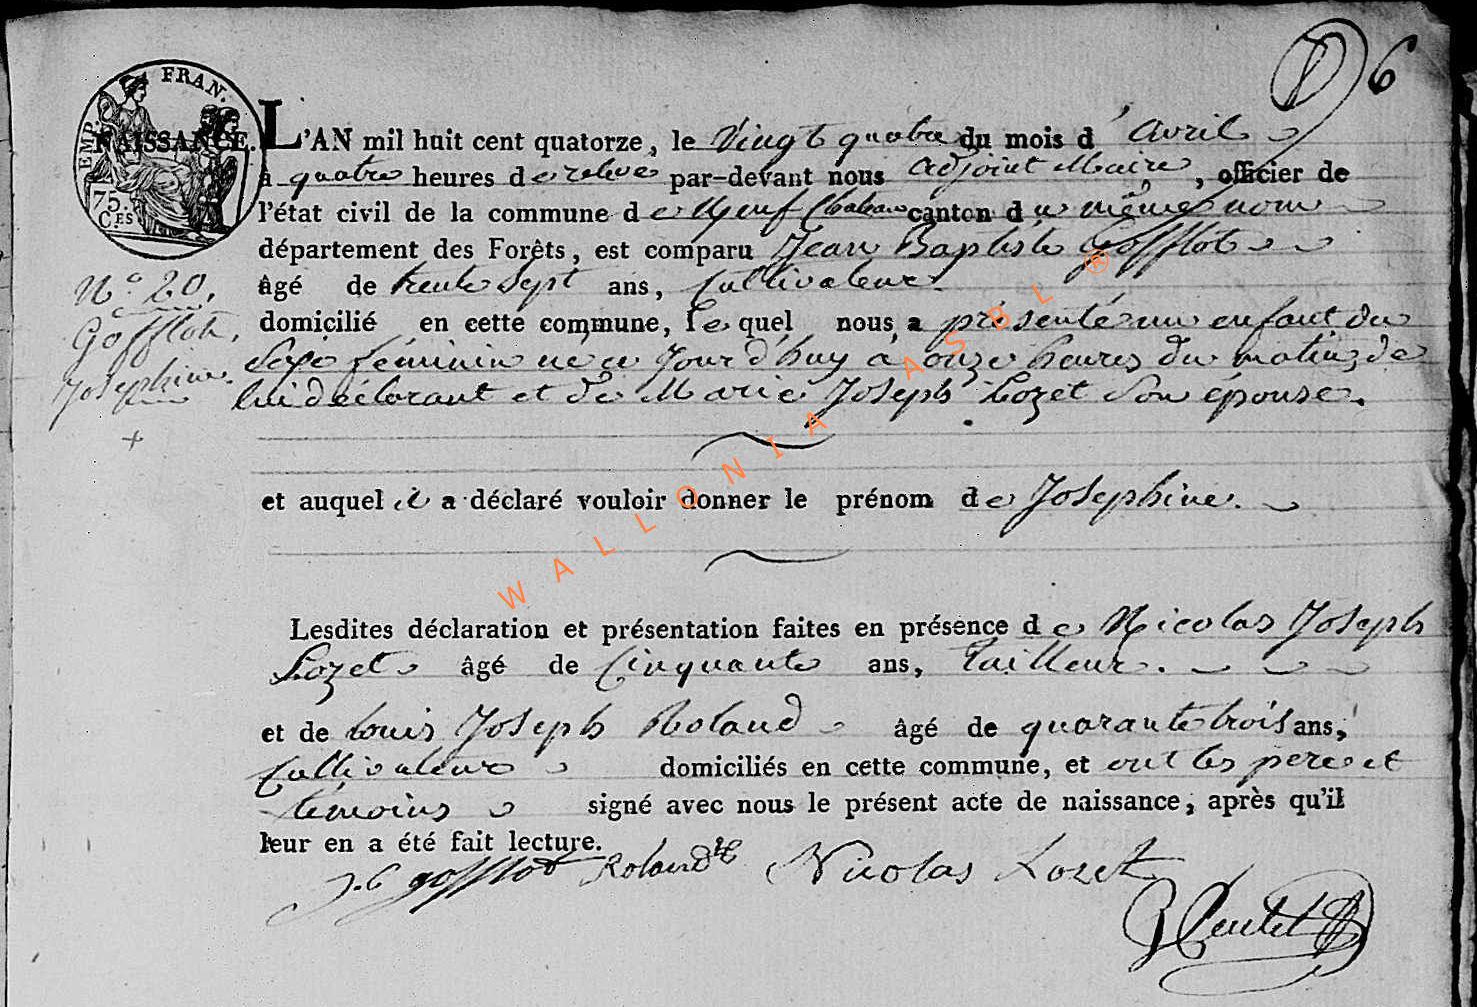 6
EMP. FRAN.
75.
C.ES
NAISSANCE.
L'AN mil huit cent quatorze, le Vingt quatre du mois d'avril
à quatre heures de relevé par-devant nous adjoint Maire, officier de
l'état civil de la commune de Neufchateau canton du même nom
département des Forêts, est comparu Jean Baptiste Gofflot
âgé de trente sept ans, Cultivateur.
domicilié en cette commune, Lequel nous a présenté un enfant du
Sexe féminin né ce Jour d'huy à onze heures du matin, de
lui déclarant et de Marie Joseph Lozet Son épouse.
et auquel il a déclaré vouloir donner le prénom de Josephine.
Lesdites déclaration et présentation faites en présence de Nicolas Joseph
Lozet âgé de Cinquante ans, Tailleur.
et de Louis Joseph Roland âgé de quarante trois ans,
Cultivateur domiciliés en cette commune, et ont les pere et
témoins signé avec nous le présent acte de naissance, après qu'il
leur en a été fait lecture.
J. B gofflot Roland Nicolas Lozet
N.º 20.
Gofflot,
Josephine.
WALLONIA ASBL ®